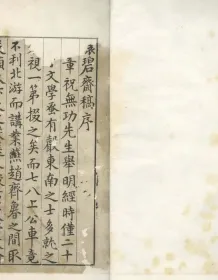 袁碧齋稿序
章祝無功先生舉明經時僅二十
文學蚤有聲東南之士多就之
視一第掇之矣而七八上公車竟
不利北游而講業燕趙齊魯之間